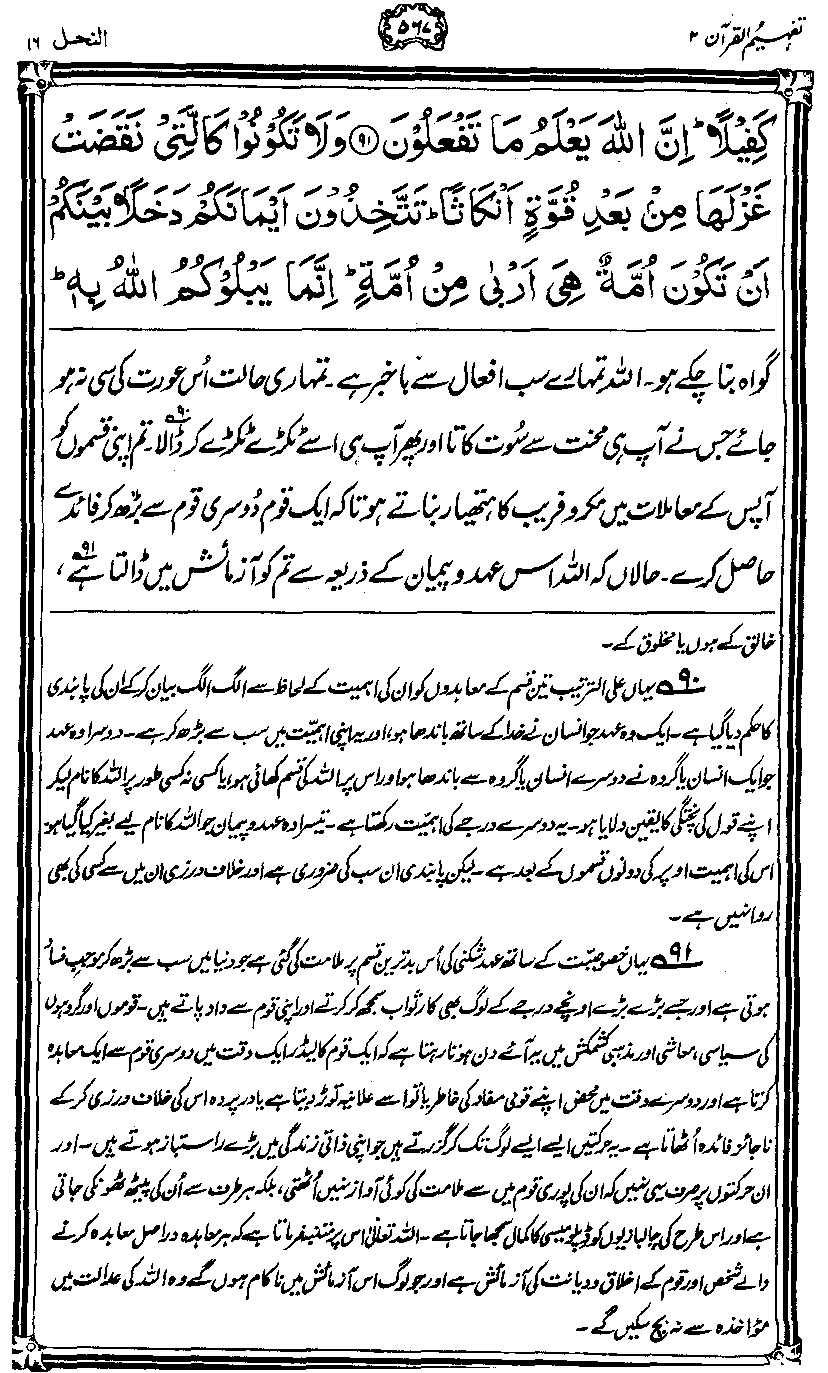 تفہیم القرآن ۲
۵۶۷
النحل ۱۶
كَفِيْلًا ؕ اِنَّ اللّٰهَ يَعْلَمُ مَا تَفْعَلُوْنَ ﴿۹۱﴾ وَلَا تَكُوْنُوْا كَالَّتِيْ نَقَضَتْ
غَزْلَهَا مِنْۢ بَعْدِ قُوَّةٍ اَنْكَاثًا ؕ تَتَّخِذُوْنَ اَيْمَانَكُمْ دَخَلًۢا بَيْنَكُمْ
اَنْ تَكُوْنَ اُمَّةٌ هِيَ اَرْبٰى مِنْ اُمَّةٍ ؕ اِنَّمَا يَبْلُوْكُمُ اللّٰهُ بِهٖ ؕ
گواہ بنا چکے ہو۔ اللہ تمہارے سب افعال سے باخبر ہے۔ تمہاری حالت اُس عورت کی سی نہ ہو
جائے جس نے آپ ہی محنت سے سُوت کاتا اور پھر آپ ہی اسے ٹکڑے ٹکڑے کر ڈالا۔۹۰ تم اپنی قسموں کو
آپس کے معاملات میں مکر و فریب کا ہتھیار بناتے ہو تاکہ ایک قوم دُوسری قوم سے بڑھ کر فائدے
حاصل کرے۔ حالاں کہ اللہ اس عہد و پیمان کے ذریعہ سے تم کو آزمائش میں ڈالتا ہے۹۱،
خالق کے ہوں یا مخلوق کے۔
۹۰ یہاں علی الترتیب تین قسم کے معاہدوں کو ان کی اہمیت کے لحاظ سے الگ الگ بیان کر کے ان کی پابندی
کا حکم دیا گیا ہے۔ ایک وہ عہد جو انسان نے خدا کے ساتھ باندھا ہو، اور یہ اپنی اہمیّت میں سب سے بڑھ کر ہے۔ دوسرا وہ عہد
جو ایک انسان یا گروہ نے دوسرے انسان یا گروہ سے باندھا ہو اور اس پر اللہ کی قسم کھائی ہو، یا کسی نہ کسی طور پر اللہ کا نام لیکر
اپنے قول کی پختگی کا یقین دلایا ہو۔ یہ دوسرے درجے کی اہمیت رکھتا ہے۔ تیسرا وہ عہد و پیمان جو اللہ کا نام لیے بغیر کیا گیا ہو
اس کی اہمیت اوپر کی دونوں قسموں کے بعد ہے۔ لیکن پابندی ان سب کی ضروری ہے اور خلاف ورزی ان میں سے کسی کی بھی
روا نہیں ہے۔
۹۱ یہاں خصوصیّت کے ساتھ عہد شکنی کی اُس بدترین قسم پر ملامت کی گئی ہے جو دنیا میں سب سے بڑھ کر موجبِ فساد
ہوتی ہے اور جسے بڑے بڑے اونچے درجے کے لوگ بھی کارِ ثواب سمجھ کر کرتے اور اپنی قوم سے داد پاتے ہیں۔ قوموں اور گروہوں
کی سیاسی، معاشی اور مذہبی کشمکش میں یہ آئے دن ہوتا رہتا ہے کہ ایک قوم کا لیڈر ایک وقت میں دوسری قوم سے ایک معاہدہ
کرتا ہے اور دوسرے وقت میں محض اپنے قومی مفاد کی خاطر یا تو اسے علانیہ توڑ دیتا ہے یا درپردہ اس کی خلاف ورزی کر کے
ناجائز فائدہ اُٹھاتا ہے۔ یہ حرکتیں ایسے ایسے لوگ تک کر گزرتے ہیں جو اپنی ذاتی زندگی میں بڑے راستباز ہوتے ہیں۔ اور
ان حرکتوں پر صرف یہی نہیں کہ ان کی پوری قوم میں سے ملامت کی کوئی آواز نہیں اُٹھتی، بلکہ ہر طرف سے اُن کی پیٹھ ٹھونکی جاتی
ہے اور اس طرح کی چالبازیوں کو ڈپلومیسی کا کمال سمجھا جاتا ہے۔ اللہ تعالیٰ اس پر متنبہ فرماتا ہے کہ ہر معاہدہ دراصل معاہدہ کرنے
والے شخص اور قوم کے اخلاق و دیانت کی آزمائش ہے اور جو لوگ اس آزمائش میں ناکام ہوں گے وہ اللہ کی عدالت میں
مؤاخذہ سے نہ بچ سکیں گے۔